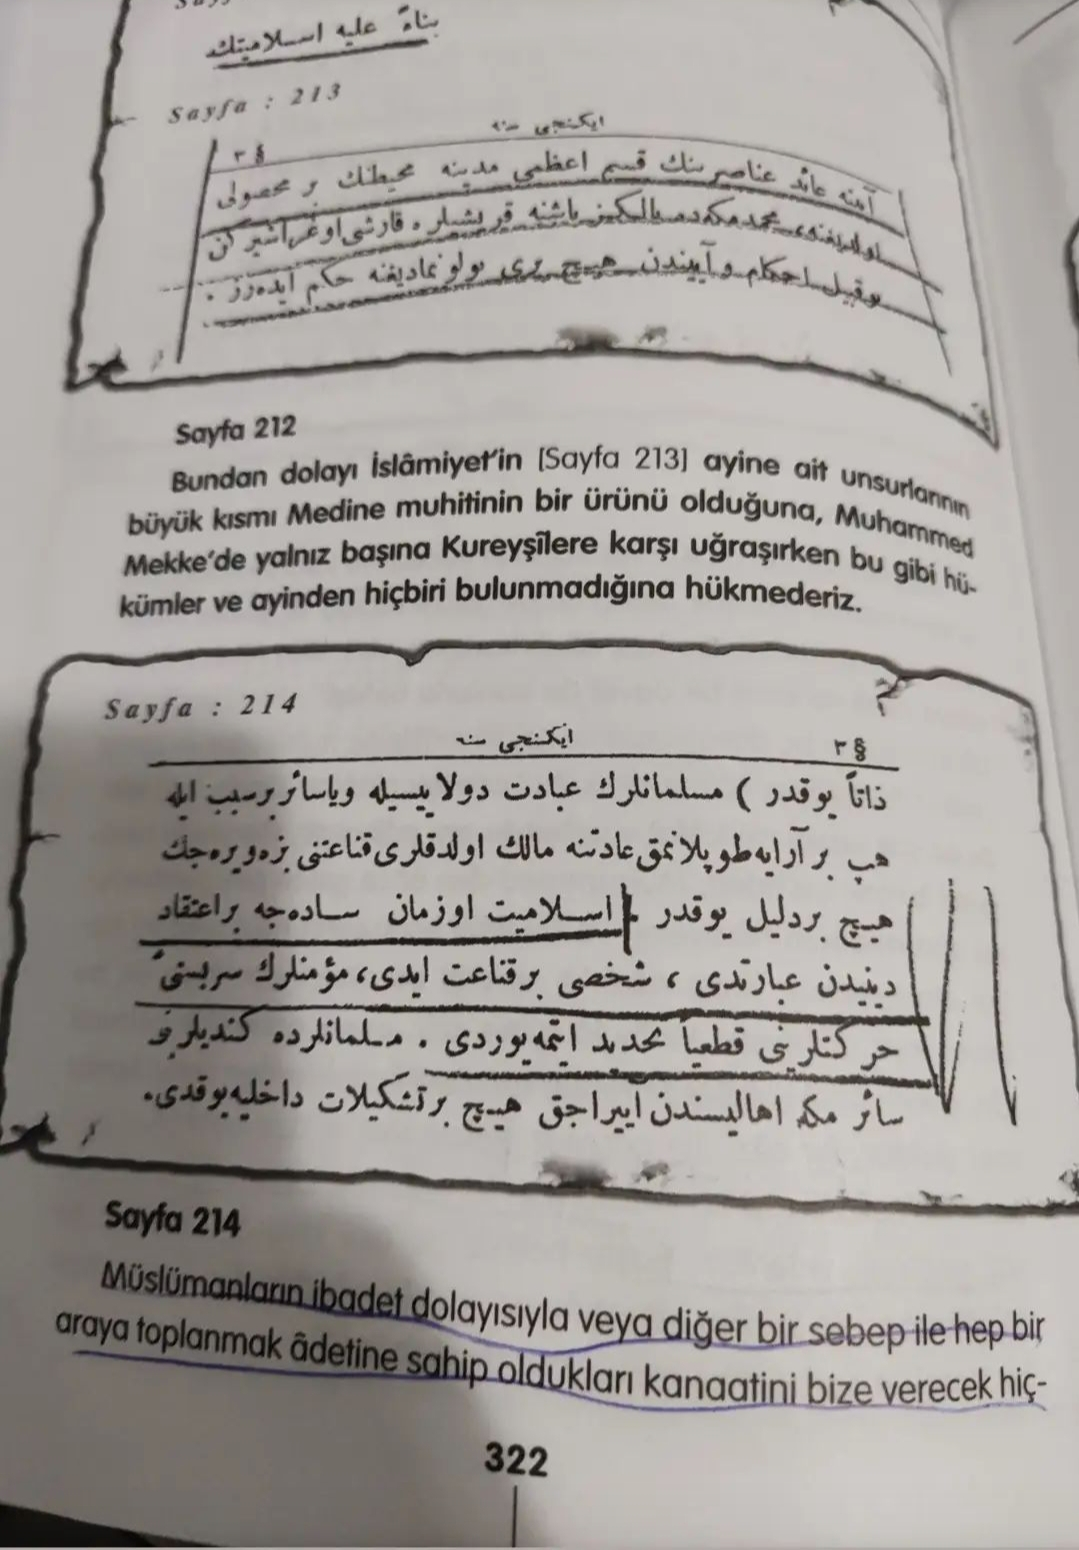 بناءً عليه اسلاميتك
Sayfa : 213
ايكنجى سنه
§ ٣
آينه عائد عناصرينك قسم اعظمى مدينه محيطنك بر محصولى
اولديغنه، محمد مكه‌ده يالكيز باشنه قريشيلره قارشى اوغراشيركن
بو قبيل احكام و آييندن هيچ برى بولونماديغنه حكم ايده‌رز .
Sayfa 212
Bundan dolayı İslâmiyet'in [Sayfa 213] ayine ait unsurlarının
büyük kısmı Medine muhitinin bir ürünü olduğuna, Muhammed
Mekke'de yalnız başına Kureyşîlere karşı uğraşırken bu gibi hü-
kümler ve ayinden hiçbiri bulunmadığına hükmederiz.
Sayfa : 214
ايكنجى سنه
§ ٣
ذاتاً يوقدر ) مسلمانلرك عبادت دولاييسيله وياسائر برسبب ايله
هپ بر آرايه طوپلانمق عادتنه مالك اولدقلرى قناعتنى بزه ويره‌جك
هيچ بردليل يوقدر . اسلاميت اوزمان ساده‌جه براعتقاد
دينيدن عبارتدى ، شخصى برقناعت ايدى، مؤمنلرك سربستىٔ
حركتلرينى قطعياً تحديد ايتمه‌يوردى . مسلمانلرده كنديلرينى
سائر مكه اهاليسندن اييراجق هيچ برتشكيلات داخليه يوقدى.
Sayfa 214
Müslümanların ibadet dolayısıyla veya diğer bir sebep ile hep bir
araya toplanmak âdetine sahip oldukları kanaatini bize verecek hiç-
322